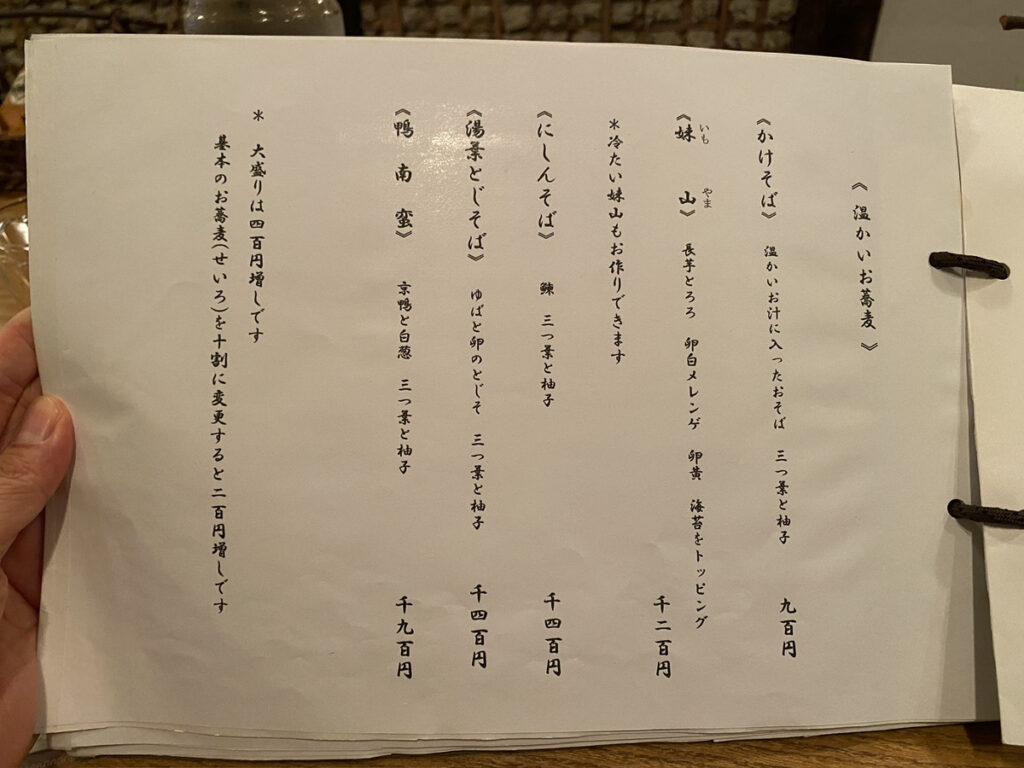 《温かいお蕎麦》
《かけそば》 温かいお汁に入ったおそば 三つ葉と柚子 九百円
《妹山》 長芋とろろ 卵白メレンゲ 卵黄 海苔をトッピング 千二百円
いも やま
＊冷たい妹山もお作りできます
《にしんそば》 鰊 三つ葉と柚子 千四百円
《湯葉とじそば》 ゆばと卵のとじそ 三つ葉と柚子 千四百円
《鴨南蛮》 京鴨と白葱 三つ葉と柚子 千九百円
＊ 大盛りは四百円増しです
基本のお蕎麦(せいろ)を十割に変更すると二百円増しです